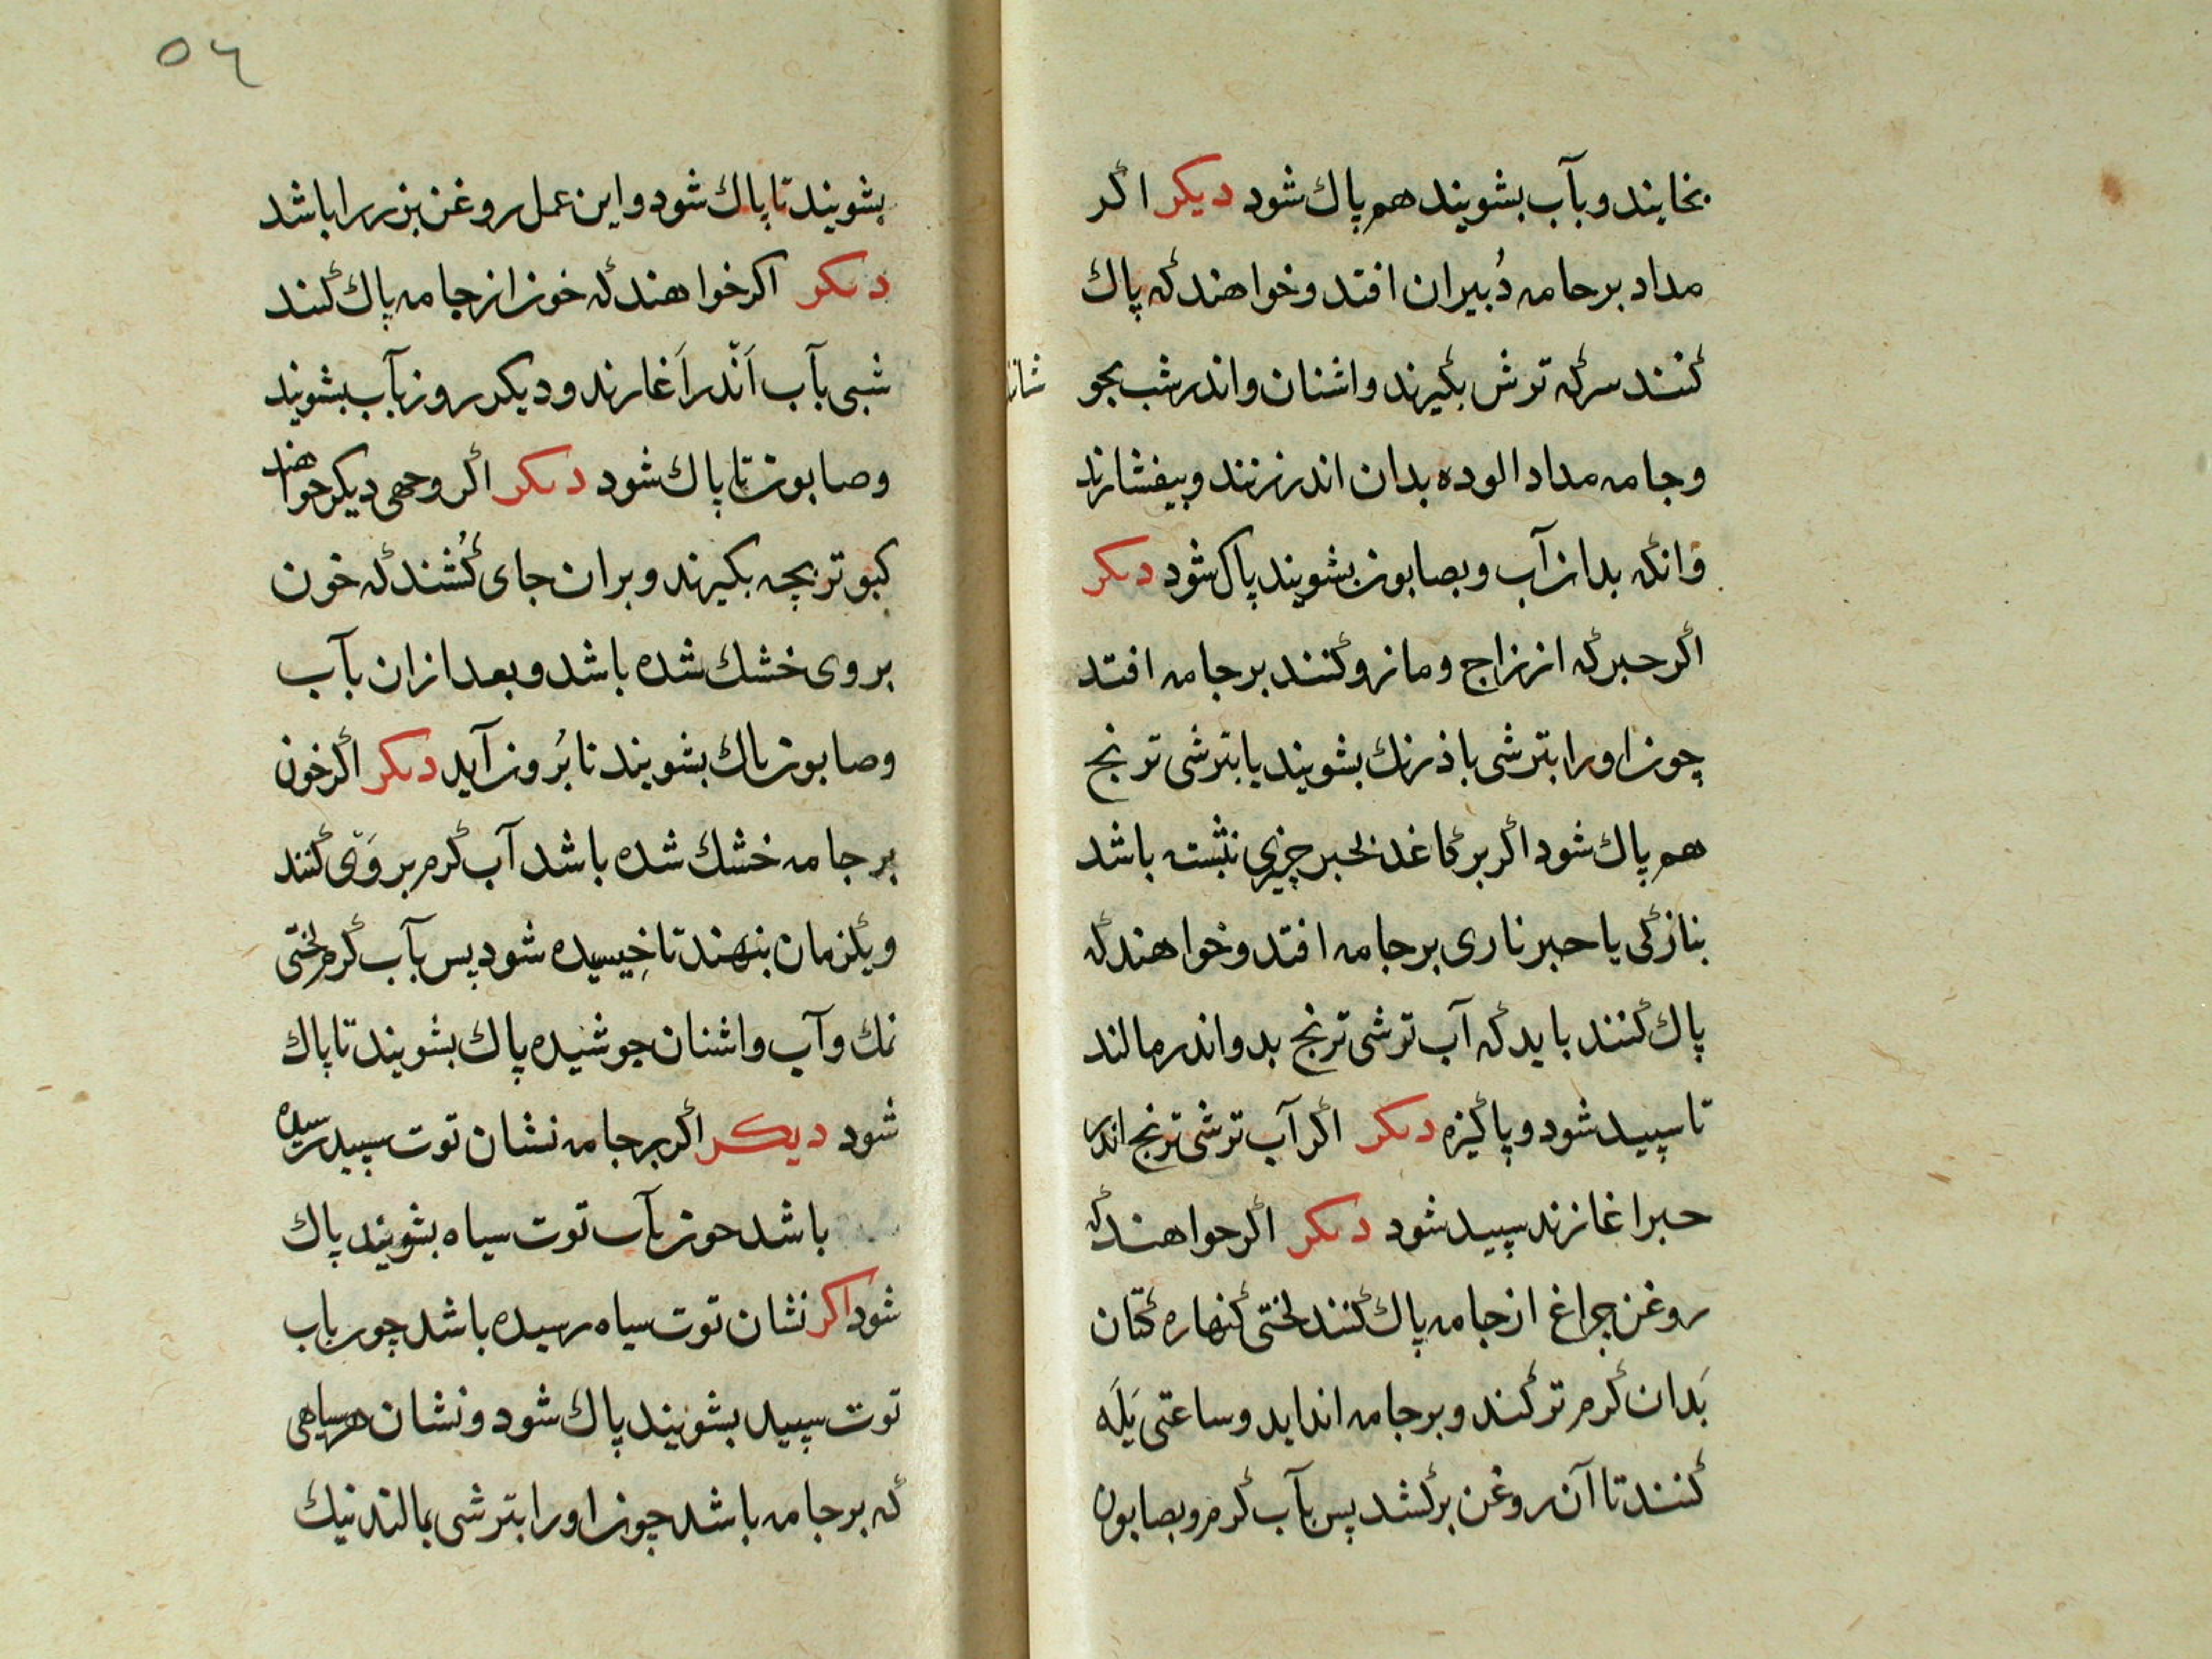 بخایند و بآب بشویند هم پاك شود دیكر اكر
مداد بر حامه دُبیران افتد و خواهند كه پاك
كنند سركه ترش بكیرند و اشنان و اندر شب بجو
وجامه مداد الوده بدان اندر زنند و بیفشارند
وانكه بدان آب و بصابون بشویند پاك شود دىكر
اكر حبر كه از زاج و مازو كنند بر جامه افتد
چون اورا بترشی باذرنك بشویند یا بترشی ترنج
هم پاك شود اكر بر كاغذ بحبر چیزی نبشته باشد
بنازكی یا حبر ناری بر جامه افتد و خواهند كه
پاك كنند باید كه آب ترشی ترنج بدو اندر مالند
تا سپید شود و پاكیزه دىكر اكر آب ترشی ترنج اندر
حبر اغازند سپید شود دىكر اكر حواهند كه
روغن چراغ از جامه پاك كنند لختی كنهاره كتان
بَدان كرم تر كند و بر جامه انداید و ساعتی یَلَه
كنند تا آن روغن بر كشد پس بآب كرم و بصابون
٥٤
بشویند تا پاك شود و این عمل روغن بزر را باشد
دىكر اكر خواهند كه خون از جامه پاك كنند
شبی بآب اَندر اَغارند و دیكر روز بآب بشویند
و صابون تا پاك شود دىكر اكر وجهی دیكر خواهند
كبوتر بچه بكیرند و بران جای كُشند كه خون
بر وی خشك شده باشد و بعد ازان بآب
و صابون پاك بشویند تا بُرون آید دىكر اكر خون
بر جامه خشك شده باشد آب كرم بر وَی كنند
و یكزمان بنهند تا خِیسیده شود پس بآب كرم لختی
نمك و آب و اشنان جوشیده پاك بشویند تا پاك
شود دیكر اكر بر جامه نشان توت سپید رسیده
باشد حون بآب توت سیاه بشویند پاك
شود اكر نشان توت سیاه رسیده باشد چون باب
توت سپید بشویند پاك شود و نشان هر سیاهی
كه بر جامه باشد چون اورا بترشی بمالند نیك